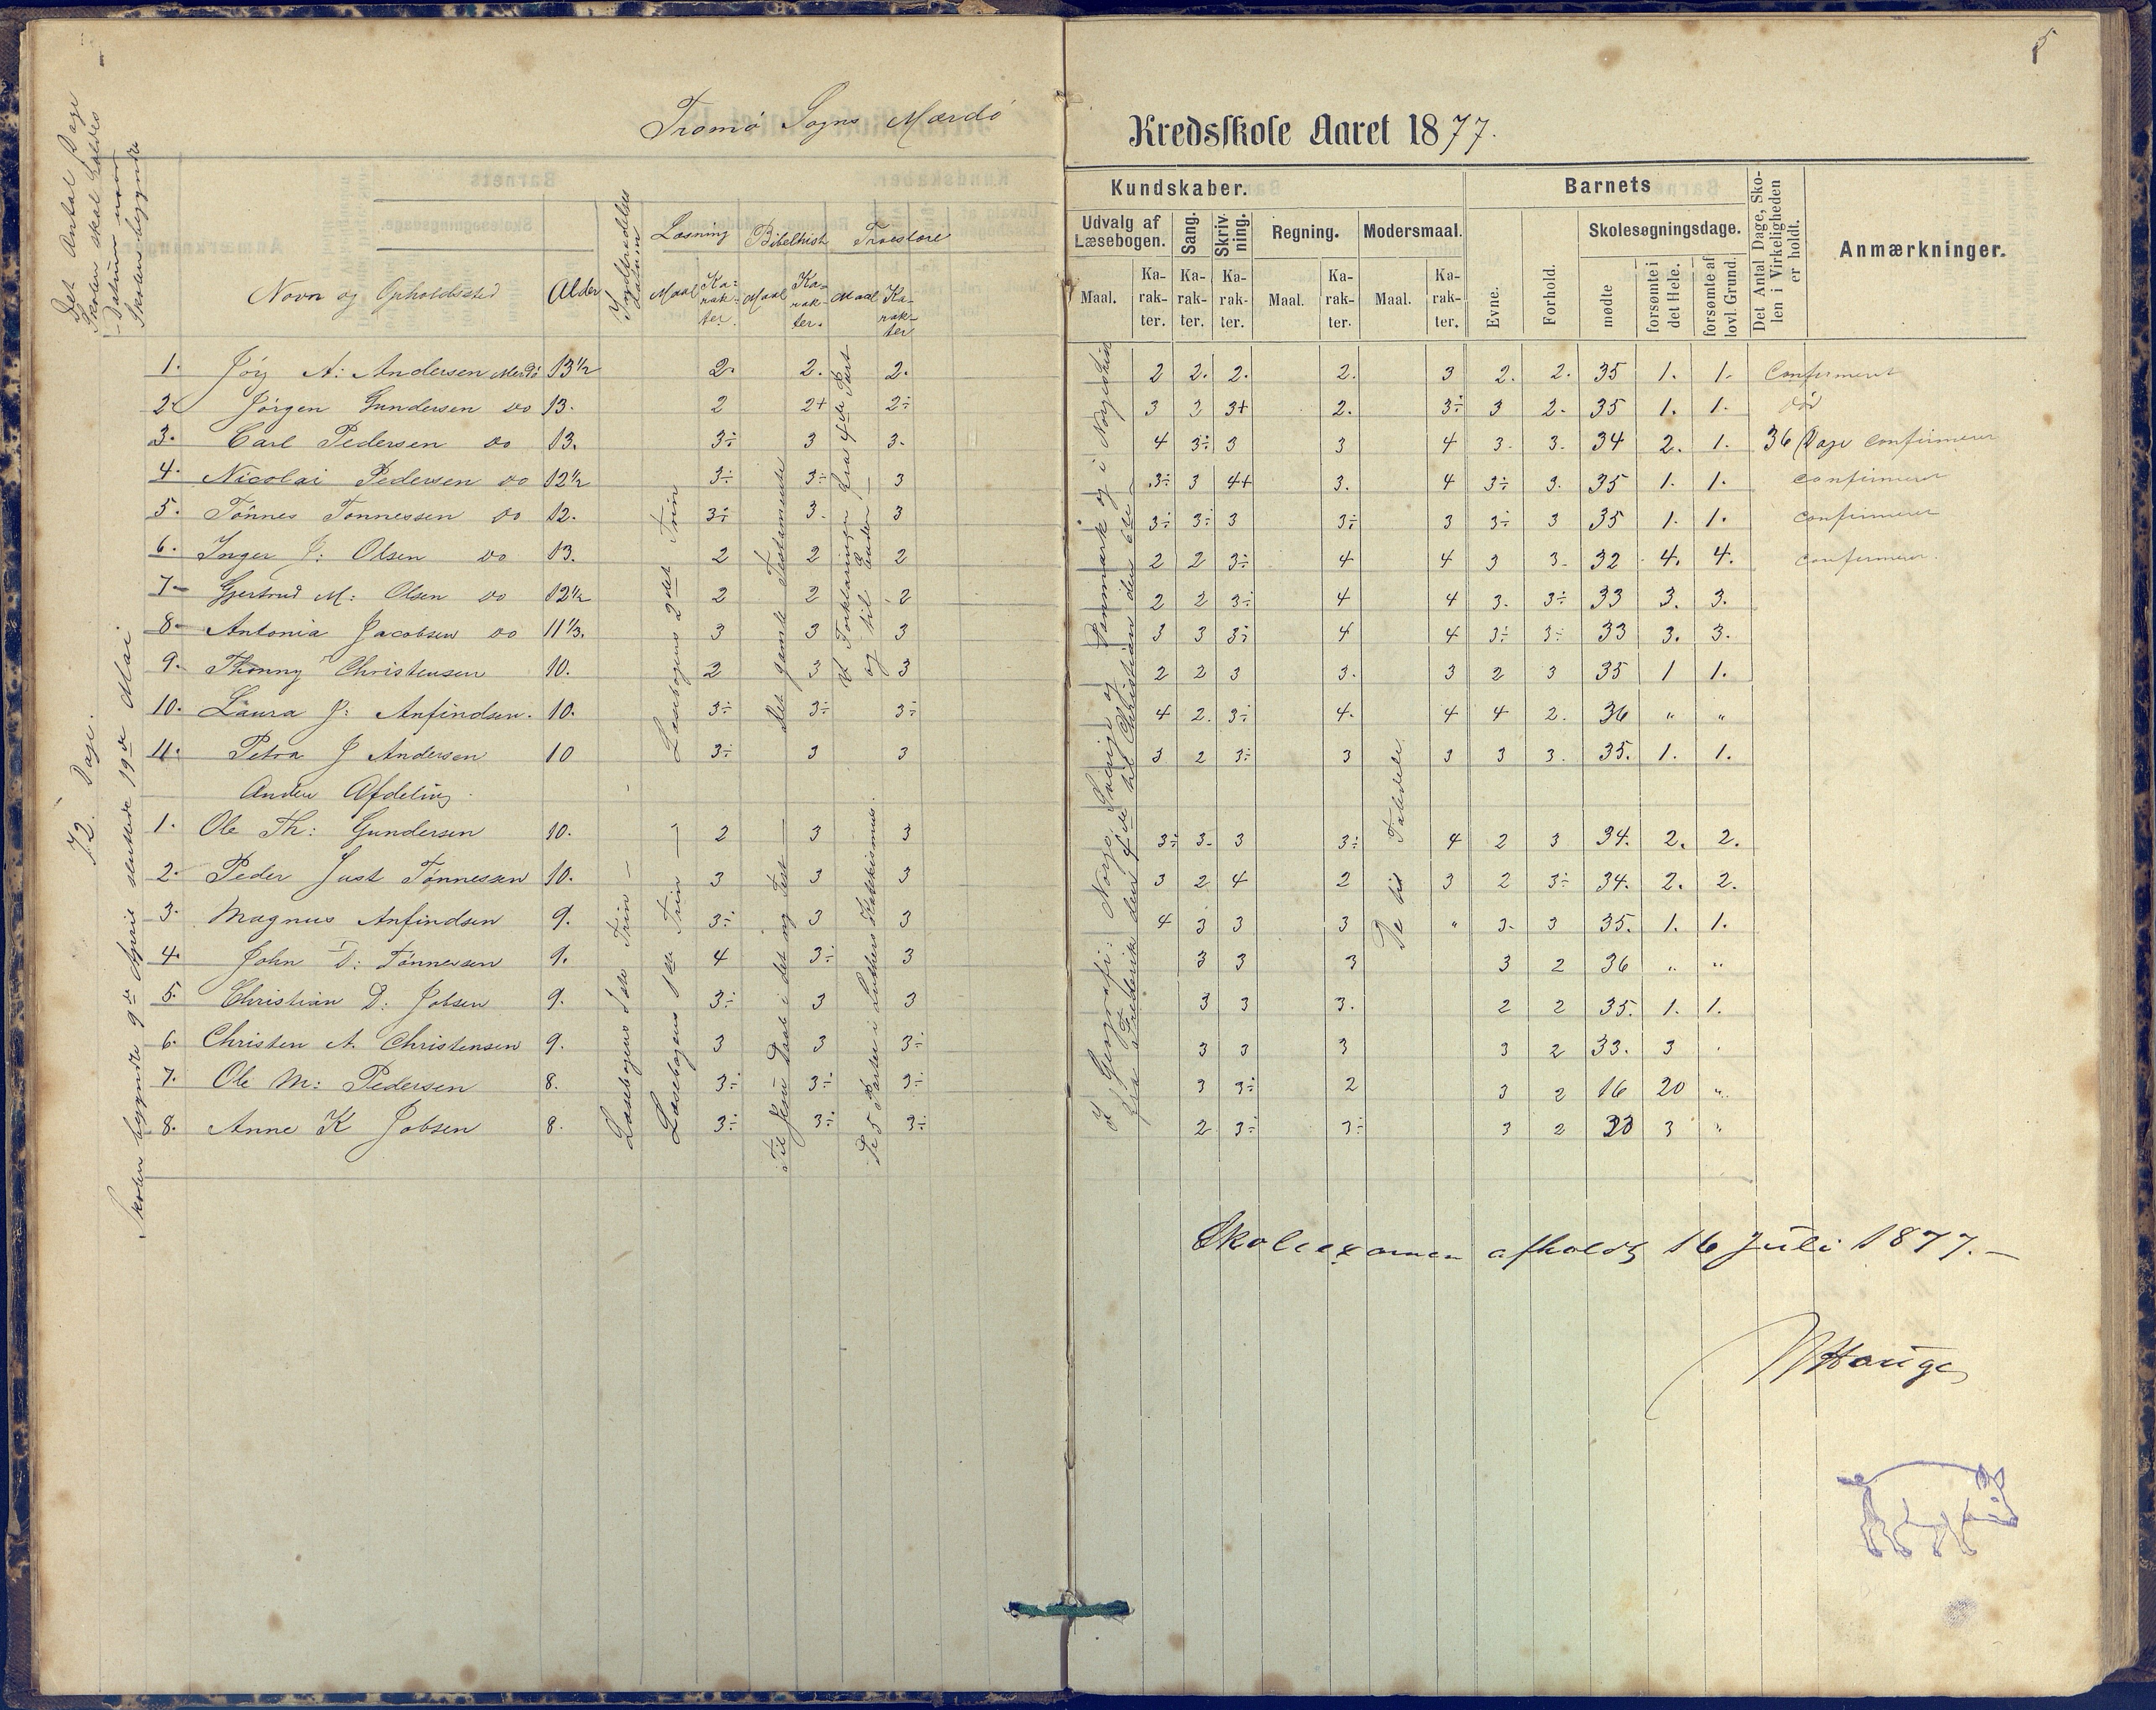 5
Tromø Sogns Mærdø Kredsskole Aaret 1877.
Det Antal Dage
Skolen skal holdes
Datum naar
Skolen begynder
72. Dage.
Skolen begyndte 9de April sluttede 19de Mai.
Navn og Opholdssted Alder Læsning Bibelhist Troeslære
Maal Ka-rak-ter. Maal Ka-rak-ter. Maal Ka-rak-ter
Kundskaber. Barnets Det Antal Dage, Skolen i Virkeligheden er holdt. Anmærkninger.
Udvalg af Læsebogen. Sang. Skrivning. Regning. Modersmaal. Evne. Forhold. Skolesøgningsdage.
Maal. Ka-rak-ter. Ka-rak-ter. Ka-rak-ter. Maal. Ka-rak-ter. Maal. Ka-rak-ter. mødte forsømte i det Hele. forsømte af lovl. Grund.
1. A: Andersen Merdø 13½ 2. 2. 2. 2 2. 2. 2. 3 2. 2. 35 1. 1. Confirmeret
2. Jörgen Gundersen do 13. 2 2+ 2÷ 3 2 3+ 2. 3÷ 3 2. 35 1. 1. död
3. Carl Pedersen do 13. 3÷ 3 3. 4 3÷ 3 3 4 3. 3. 34 2. 1. 36 Dage confirmeret
4. Nicolai Pedersen do 12½ 3÷ 3÷ 3 3÷ 3 4+ 3. 4 3÷ 3. 35 1. 1. confirmeret
5. Tönnes Tonnessen do 12. 3÷ 3. 3 3÷ 3÷ 3 3÷ 3 3÷ 3 35 1. 1. confirmeret
6. Inger J: Olsen do 13. 2 2 2 2 2 3÷ 4 4 3 3. 32 4. 4. confirmeret
7 Gjertrud M: Olsen do 12½ 2 2 2 2 2 3÷ 4 4 3. 3÷ 33 3. 3.
8 Antonia Jacobsen do 11⅓. 3 3 3 3 3 3÷ 4 4 3÷ 3÷ 33 3. 3.
9. Thonny Christensen 10. 2 3 3 2 2 3 3. 3 2 3 35 1 1.
10. Laura J: Anfindsen. 10. 3÷ 3÷ 3÷ 4 2. 3÷ 4. 4 4 2. 36 " "
11. Petra J Andersen 10 3÷ 3 3 3 2 3÷ 3 3 3 3. 35. 1. 1.
Anden Afdeling.
1. Ole Th: Gundersen 10. 2 3 3 3÷ 3. 3 3÷ 4 2 3 34. 2. 2.
2. Peder Just Tønnessen 10. 3 3 3 3 2 4 2 3 2 3÷ 34. 2. 2.
3. Magnus Anfindsen 9. 3÷ 3 3 4 3 3 3 " 3. 3 35. 1. 1.
4. John D: Tönnesen 9. 4 3÷ 3 3 3 3 3 2 36 " "
5. Christian D: Jobsen 9. 3÷ 3 3 3 3 3. 2 2 35. 1. 1.
6. Christen A. Christensen 9. 3 3 3÷ 3 3 3 3 2 33. 3
7. Ole M: Pedersen 8. 3÷ 3÷ 3÷ 3 3÷ 2 3 2 16 20 "
8. Anne K Jobsen 8. 3÷ 3÷ 3÷ 2 3÷ 3÷ 3 2 33 3 "
Læsebogens 2det Trin
Læsebogens 1ste Trin
Læsebogens 1ste Trin
Det gamle Testamente
Til Jesu Daab i det ny Test
Forklaringen fra 4de Part
og til Enden
De 5 Parter i Luthers Katekismus.
I Geografi: Norge, Sverige og Danmark og i Norgeshist
fra Frederik den 4de til Christian den
De til Taledele
Skoleexamen afholdt 16 Juli 1877.
Hauge